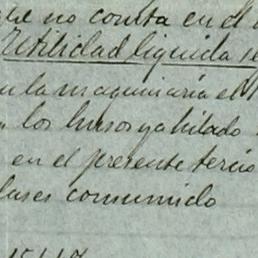 que no consta en el
Utilidad liquida se
la maquinaria el
los husos ya hilado
en el presente tercio
clases consumido